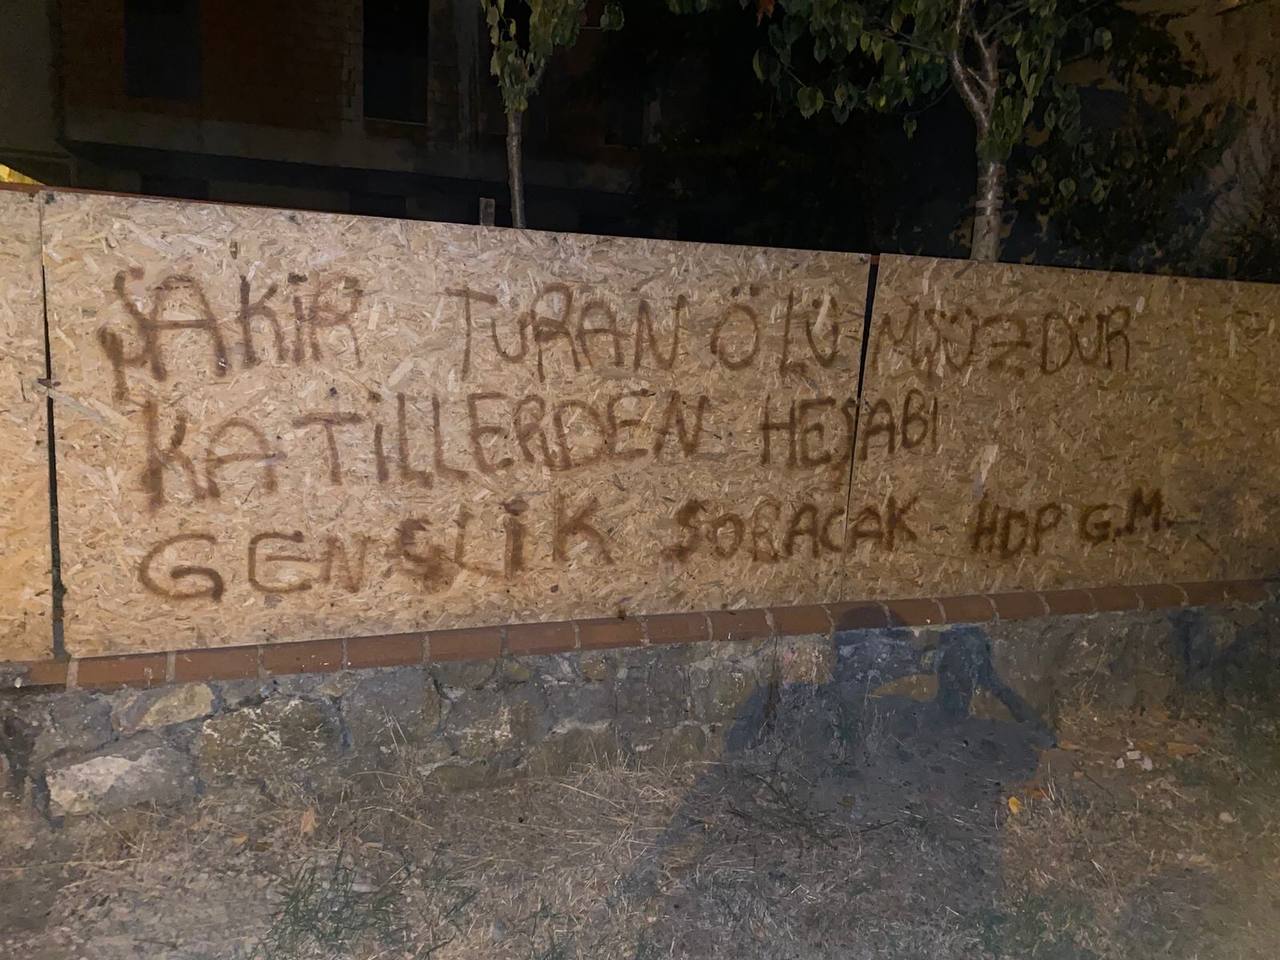 ŞAKİR TURAN ÖLÜMSÜZDÜR
KATİLLERDEN HESABI
GENÇLİK SORACAK HDP G.M.